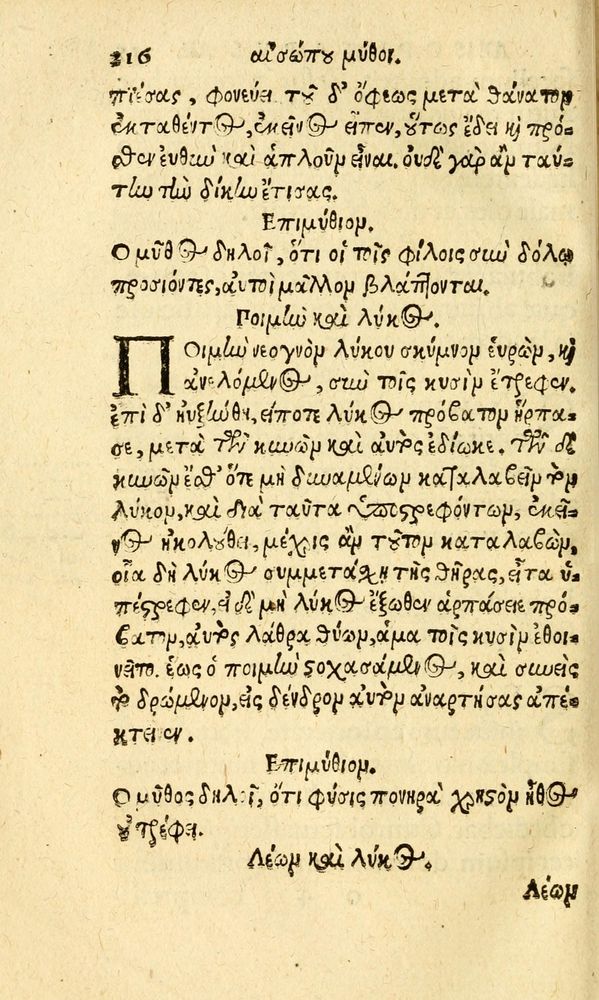 216 αἰσώπου μῦθοι.
πιέσας, φονεύει. τοῦ δ' ὄφεως μετὰ θάνατον
ἐκταθέντος, ἐκεῖνος εἶπεν, οὕτως ἔδει καὶ πρό-
σθεν εὐθὺν καὶ ἁπλοῦν εἶναι. οὐδὲ γὰρ ἂν ταύ-
την τὴν δίκην ἔτισας.
Επιμύθιον.
Ο μῦθος δηλοῖ, ὅτι οἱ τοῖς φίλοις σὺν δόλῳ
προσιόντες, αὐτοὶ μᾶλλον βλάπτονται.
Ποιμὴν καὶ λύκος.
Ποιμὴν νεογνὸν λύκου σκύμνον εὑρὼν, καὶ
ἀνελόμενος, σὺν τοῖς κυσὶν ἔτρεφεν.
ἐπεὶ δ' ηὐξήνθη, εἴποτε λύκος πρόβατον ἥρπα-
σε, μετὰ τῶν κυνῶν καὶ αὐτὸς ἐδίωκε. τῶν δὲ
κυνῶν ἔσθ' ὅτε μὴ δυναμένων καταλαβεῖν τὸν
λύκον, καὶ διὰ ταῦτα ὑποστρεφόντων, ἐκεῖ-
νος ἠκολούθει, μέχρις ἂν τοῦτον καταλαβὼν,
οἷα δὴ λύκος συμμετάσχῃ τῆς θήρας, εἶτα ὑ-
πέστρεφεν, εἰ δὲ μὴ λύκος ἔξωθεν ἁρπάσειε πρό-
βατον, αὐτὸς λάθρα θύων, ἅμα τοῖς κυσὶν ἐθοι-
νεῖτο. ἕως ὁ ποιμὴν στοχασάμενος, καὶ συνεὶς
τὸ δρώμενον, εἰς δένδρον αὐτὸν ἀναρτήσας ἀπέ-
κτεινεν.
Επιμύθιον.
Ο μῦθος δηλοῖ, ὅτι φύσις πονηρὰ χρηστὸν ἦθος
οὐ τρέφει.
Λέων καὶ λύκος.
Λέων